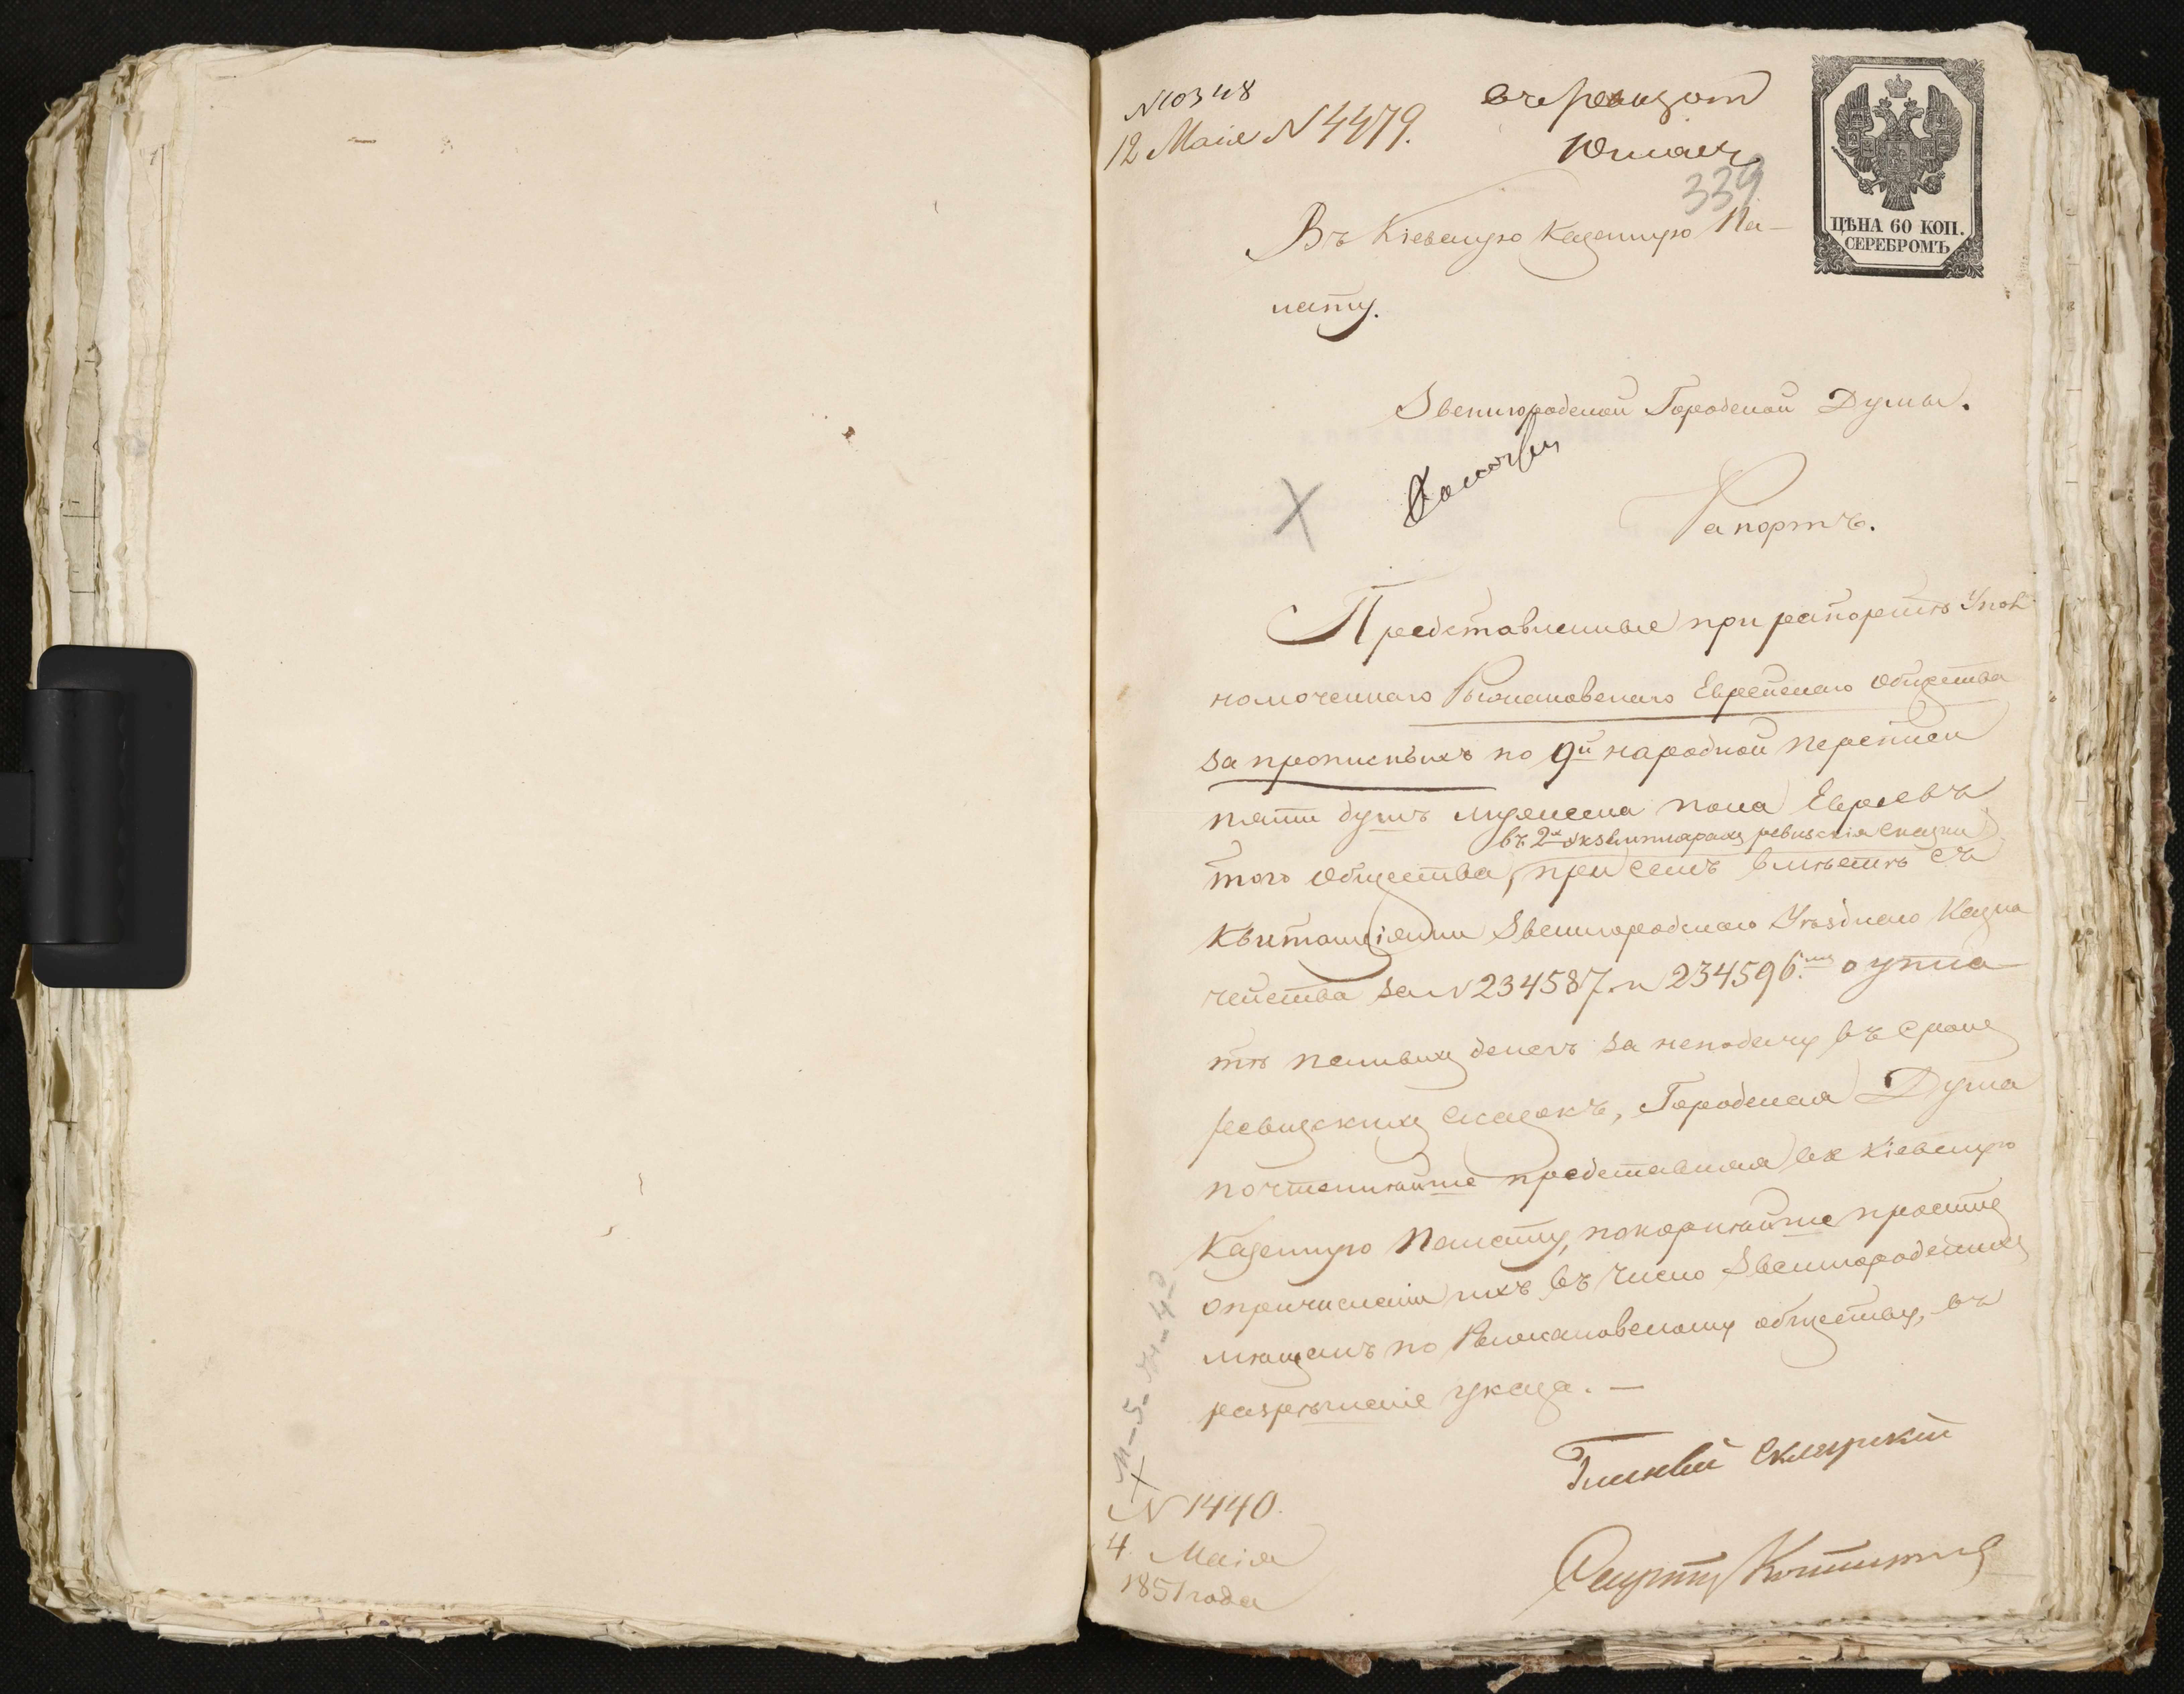 N 10348
12 Маія N 4479.
339
ЦѢНА 60 КОП.
СЕРЕБРОМЪ
Въ Кіевскую Казенную Па-
лату.
Звенигородской Городской Думы.
Рапортъ.
Представленные при рапортѣ Упол
номоченнаго Рыжановскаго Еврейскаго общества
за прописныхъ по 9й народной переписи
пяти душъ мужеска пола Евреевъ
въ 2х экземплярахъ ревизскія сказки
того общества, при семъ вмѣстѣ съ
квитанціями Звенигородскаго Уѣзднаго Казна
чейства за N 234587. и 234596. о упла
тѣ пенныхъ денегъ за неподачу въ срокъ
ревизскихъ сказокъ, Городская Дума
почтеннѣйше представляя въ Кіевскую
Казенную Палату, покорнѣйше проситъ
о причисленіи ихъ въ число Звенигородскихъ
мѣщанъ по Рыжановскому обществу, въ
разрѣшеніе указа. —
N 1440.
4 Маія
1851 года